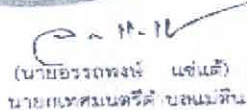 (นายอรรถพงษ์ แซ่แต้)
นายกเทศมนตรีตำบลแม่ตืน